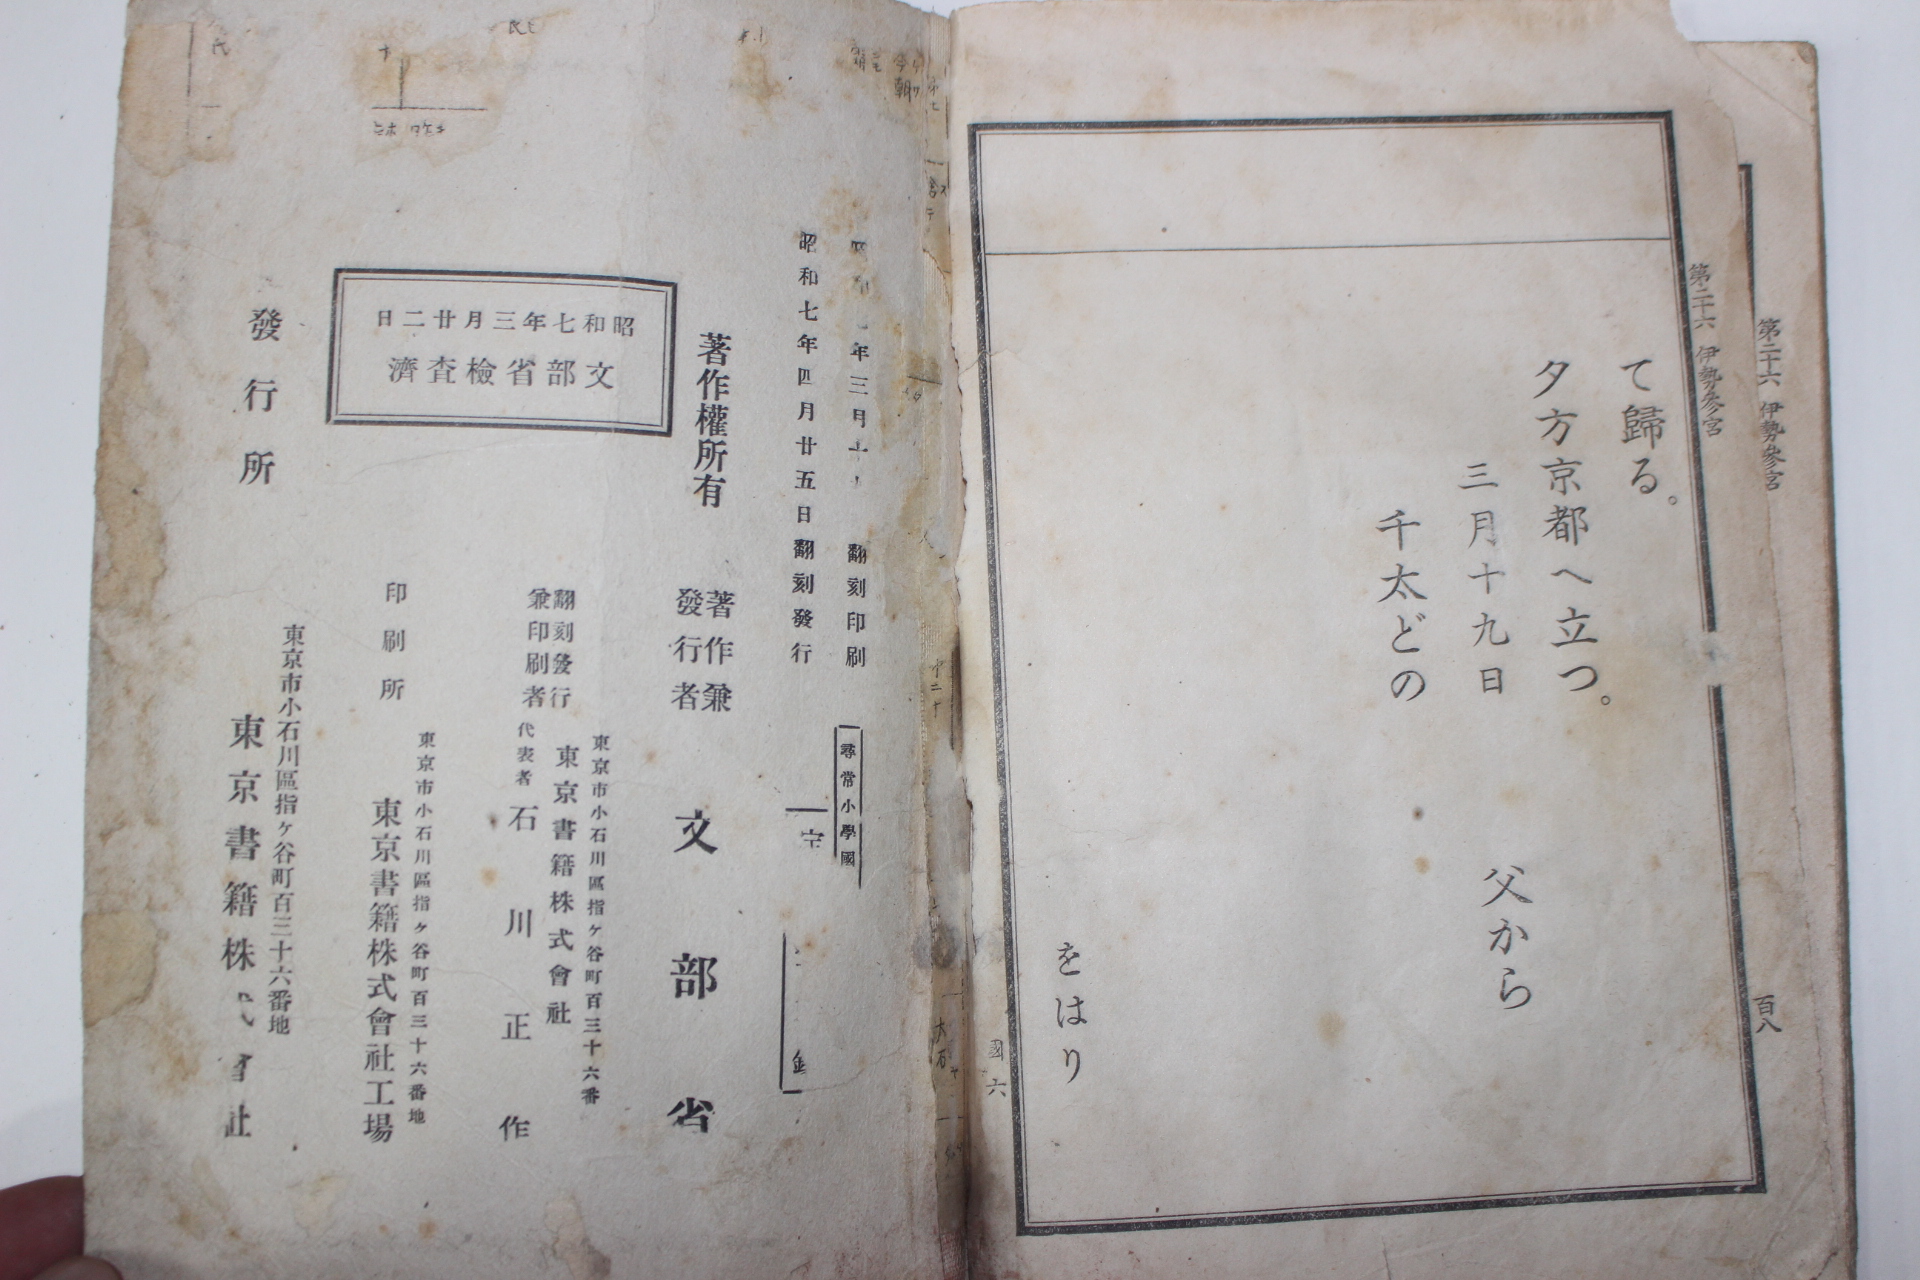 第二十六 伊勢參宮
百八
第二十六 伊勢參宮
て歸る。
夕方京都へ立つ。
三月十九日
父から
千太どの
をはり
國六
年三月
翻刻印刷
昭和七年四月廿五日翻刻發行
尋常小學國
著作權所有
著作兼
發行者
文部省
昭和七年三月廿二日
文部省檢査濟
翻刻發行
兼印刷者
東京市小石川區指ヶ谷町百三十六番
東京書籍株式會社
代表者 石川正作
印刷所
東京市小石川區指ヶ谷町百三十六番地
東京書籍株式會社工場
發行所
東京市小石川區指ヶ谷町百三十六番地
東京書籍株式會社